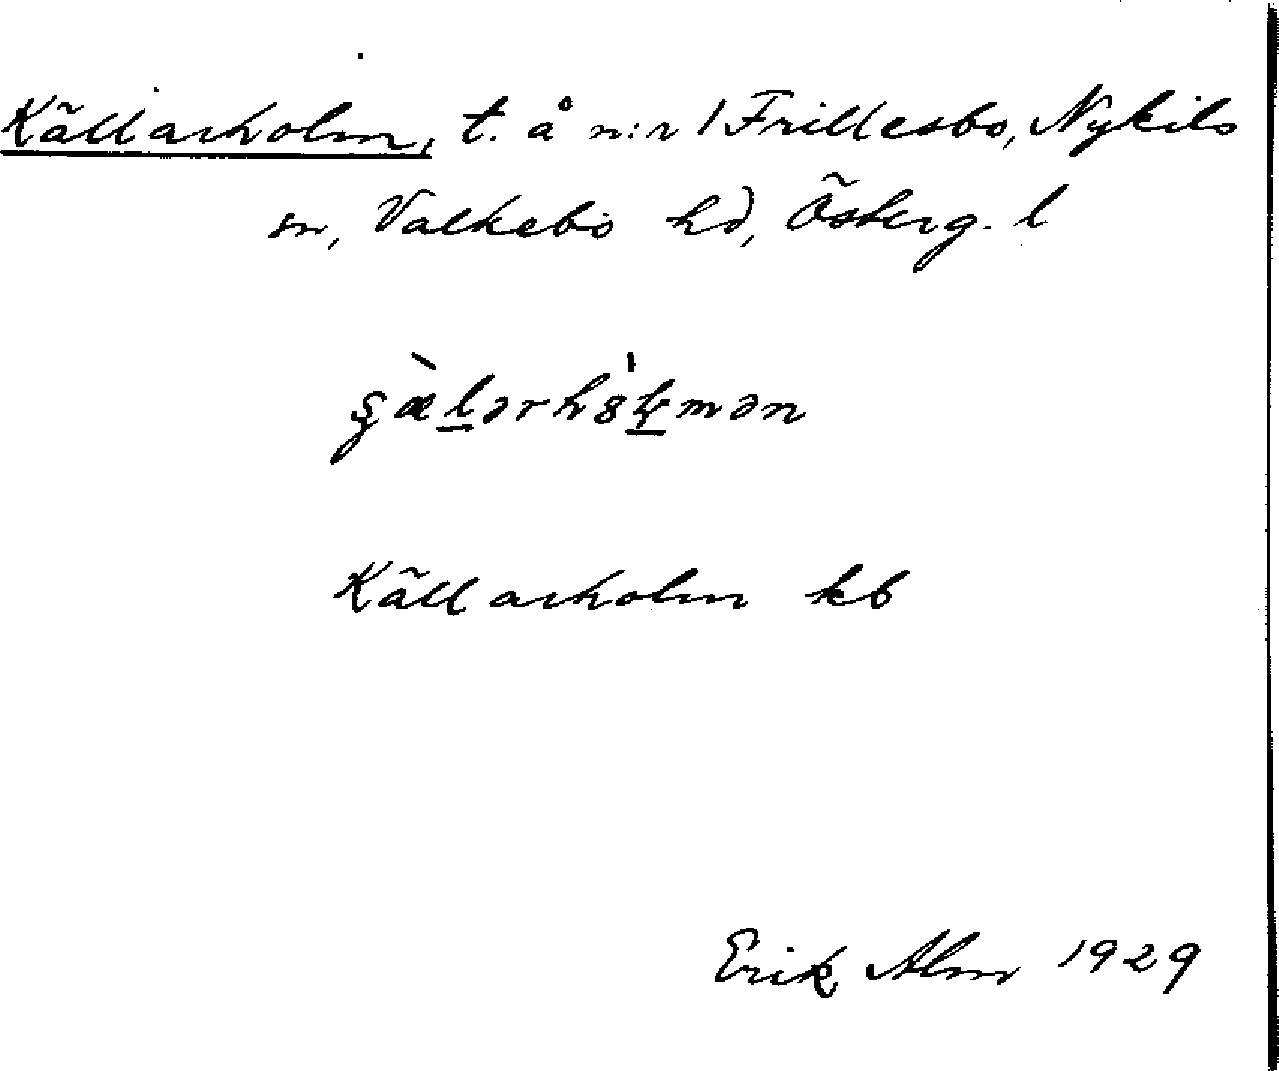 Källarholm, t. å n:r 1 Frillesbo, Nykils
sn, Valkebo hd, Österg. l
Källarholm kb
Erik Alm 1929